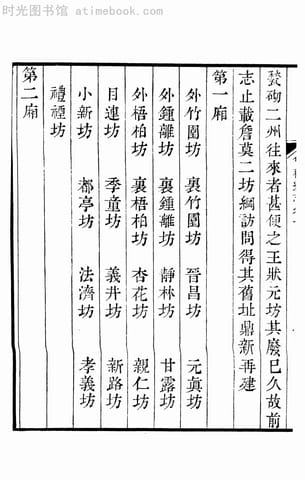 时光图书馆 - atimebook.com
二州往來者甚便之王狀元坊其廢已久故前
志止載詹莫二坊綱訪問得其舊址鼎新再建
第一廂
外竹園坊 裏竹園坊 晉昌坊 元眞坊
外鍾離坊 裏鍾離坊 靜林坊 甘露坊
外梧柏坊 裏梧柏坊 杏花坊 親仁坊
目連坊 季童坊 義井坊 新路坊
小新坊 都亭坊 法濟坊 孝義坊
禮禋坊
第二廂